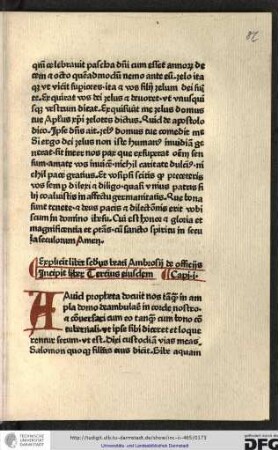 82
qm̄ celebrauit pascha dn̄i cum esset annorꝫ de
cem ⁊ octo quēadmodū nemo ante eū. zelo ita
qꝫ ut vicit
Exquirat vos dei zelus ⁊ deuoret. ut vnusqui
sqꝫ vestrum dicat. Exquisiuit me zelus domus
tue Quid de apostolo
dico. Ipse dn̄s ait. zelꝰ domus tue comedit me
Si ergo dei zelus non iste humanꝰ inuidiā ge
nerat sit inter nos pax que exsuperat om̄ sen
sum amate vos inuicē nichil caritate dulciꝰ ni
chil pace gratius. Et vosipsi scitis qꝫ pre ceteris
vos semp dilexi ⁊ diligo quasi vniꝰ patris fi
lij coaluistis in affectu germanitatis. Que bona
sunt tenete ⁊ deus pacis ⁊ dilectiōis erit vobi
scum in domino ihesu. Cui est honor ⁊ gloria et
magnificentia et ptās cū sancto spiritu in secu
la seculorum Amen.
Explicit liber scd̄us beati Ambrosij de officijs
Incipit liber Tercius eiusdem Capl. i.
Dauid propheta docuit nos tāqꝫ in am
pla domo deambulare in corde nostro
⁊ cōuersari cum eo tanqꝫ cum bono cō
tubernali. vt ipse sibi diceret et loque
retur secum. vt est. Dixi custodiā vias meas.
Salomon quoqꝫ filius eius dicit. Bibe aquam
TECHNISCHE UNIVERSITÄT DARMSTADT
http://tudigit.ulb.tu-darmstadt.de/show/inc-ii-465/0173
Universitäts- und Landesbibliothek Darmstadt
gefördert durch die
DFG